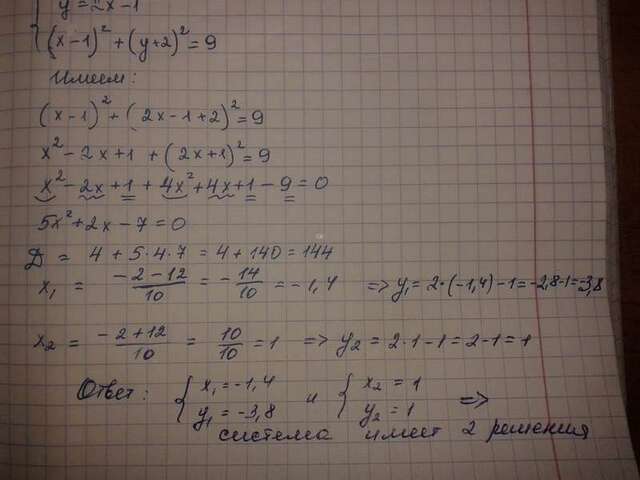 y = 2x-1
(x-1)² + (y+2)² = 9
Имеем:
(x-1)² + (2x-1+2)² = 9
x² - 2x + 1 + (2x+1)² = 9
x² - 2x + 1 + 4x² + 4x + 1 - 9 = 0
5x² + 2x - 7 = 0
D = 4 + 5·4·7 = 4 + 140 = 144
x₁ = (-2-12)/10 = -14/10 = -1,4 => y₁ = 2·(-1,4)-1 = -2,8-1 = -3,8
x₂ = (-2+12)/10 = 10/10 = 1 => y₂ = 2·1-1 = 2-1 = 1
Ответ: { x₁ = -1,4 и { x₂ = 1 =>
y₁ = -3,8 y₂ = 1
система имеет 2 решения